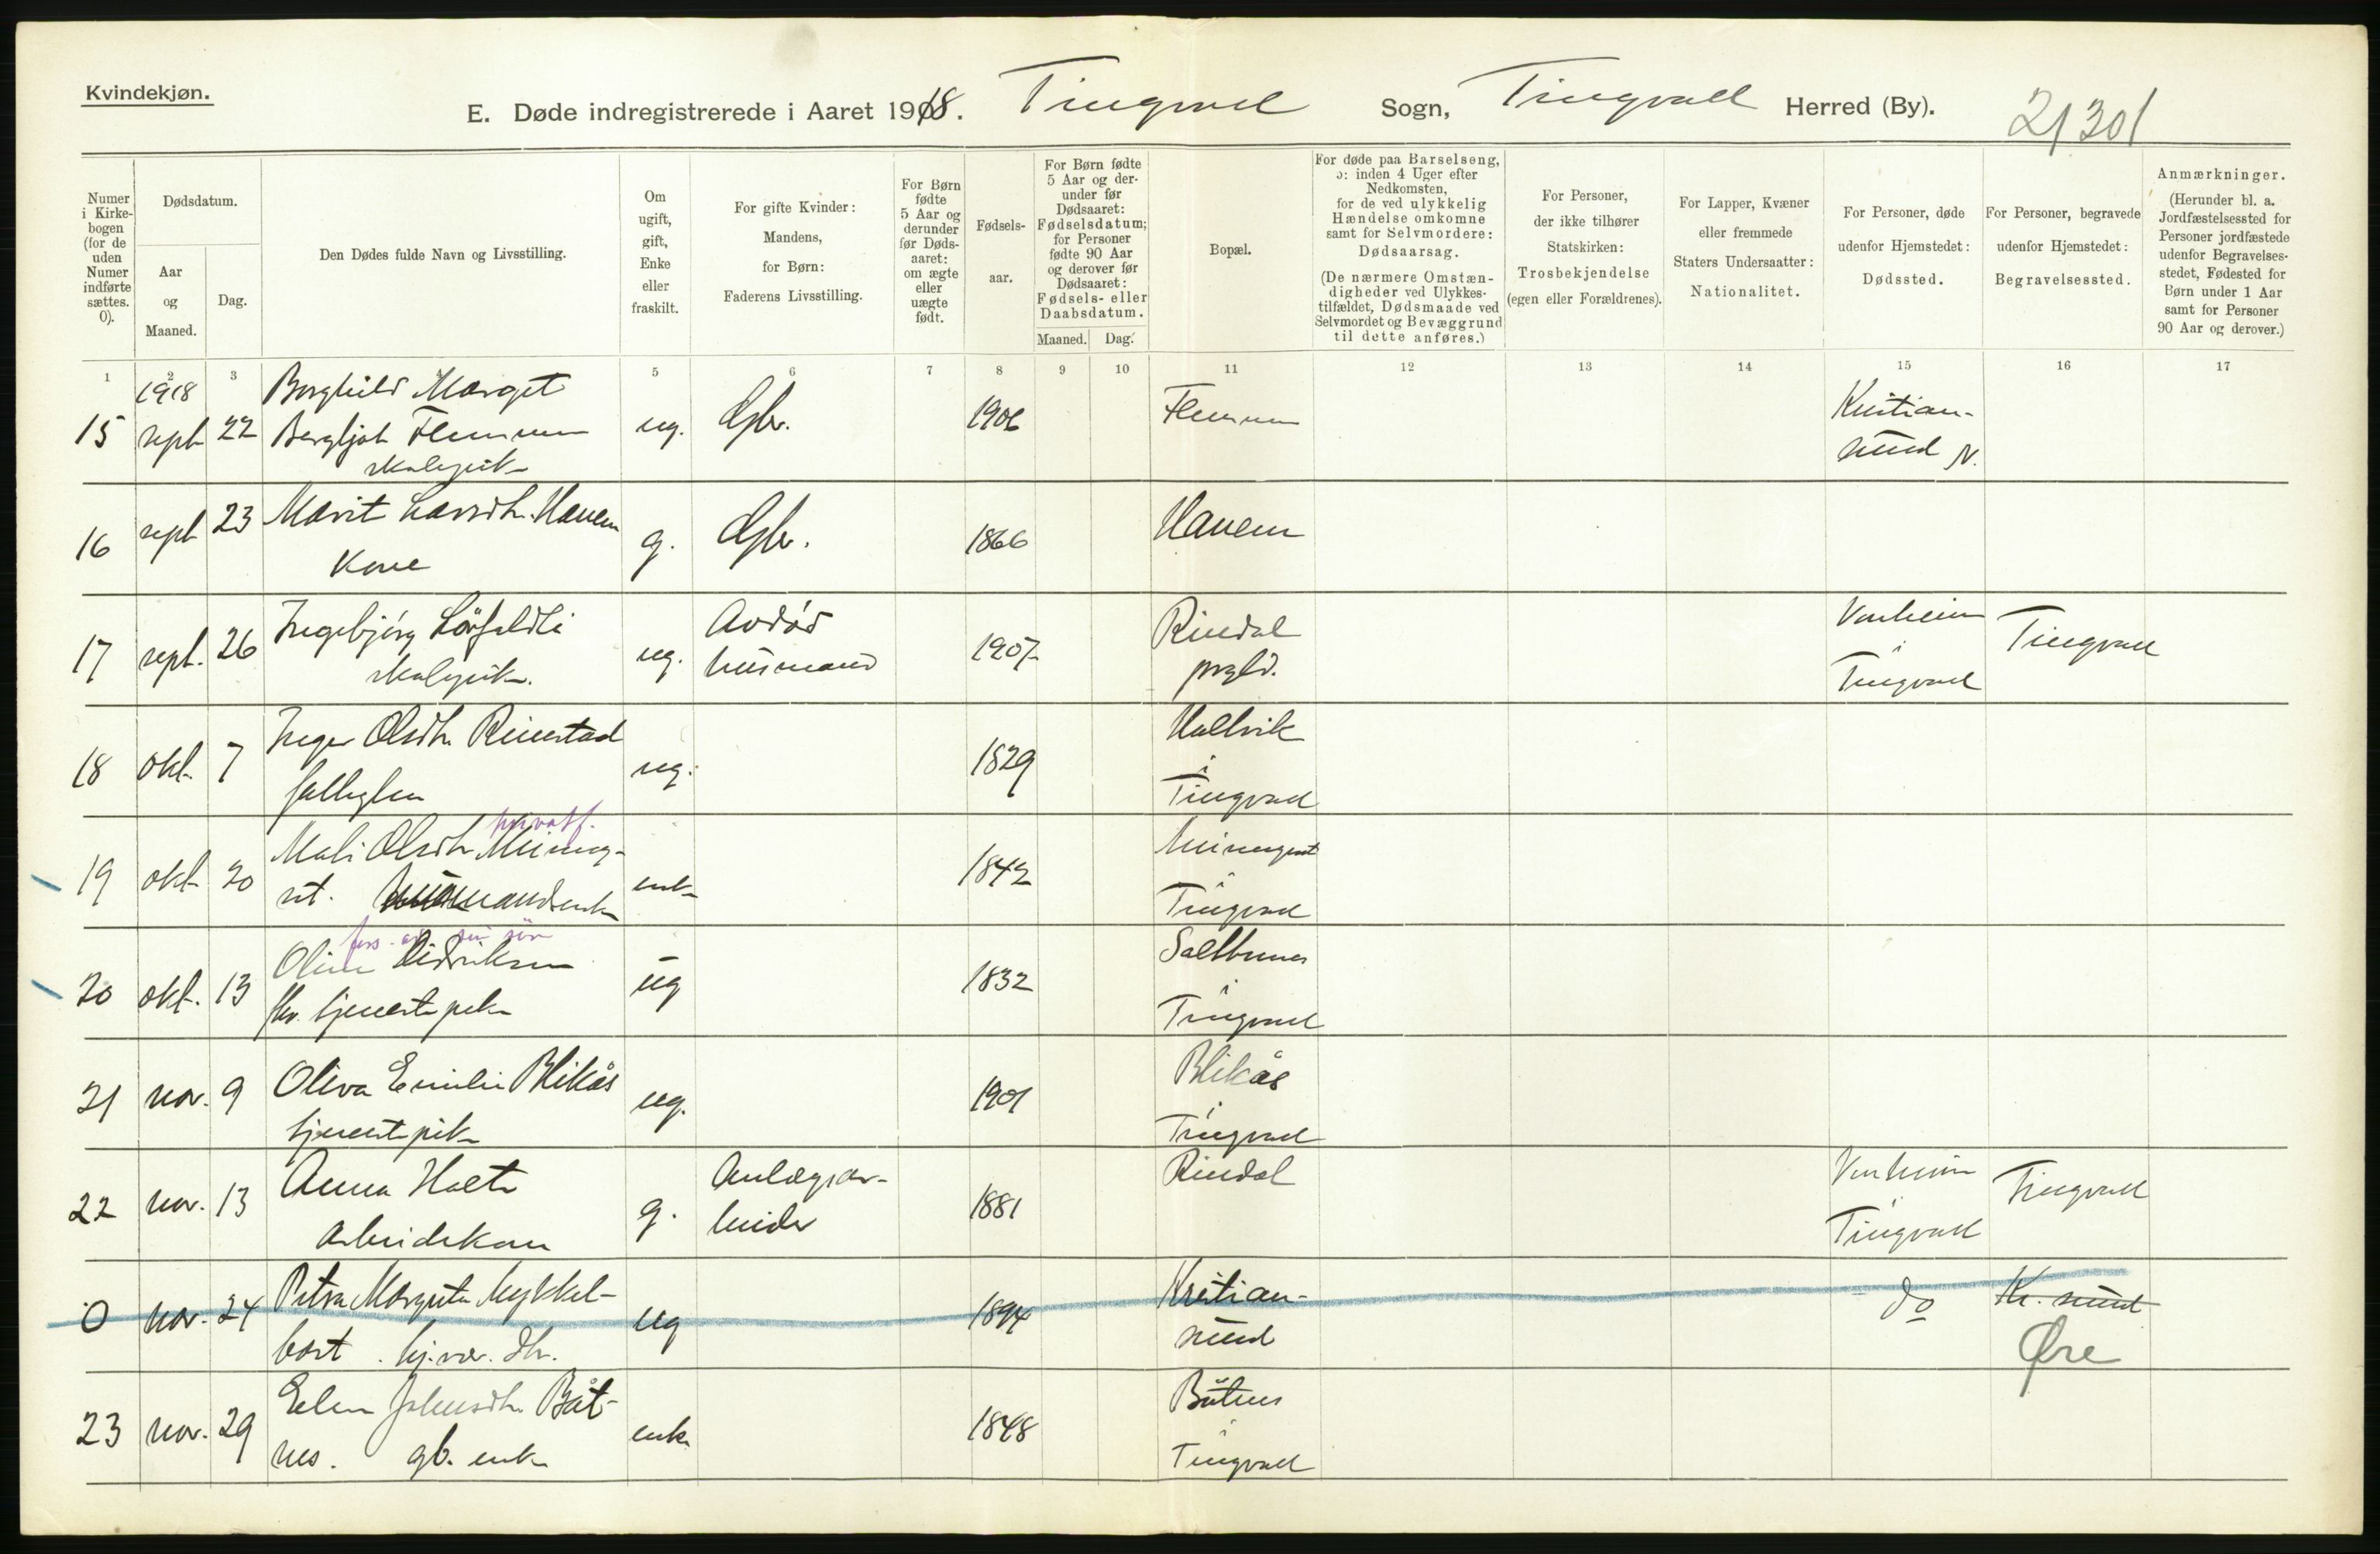 Kvindekjøn.
E. Døde indregistrerede i Aaret 1918. Tingvoll Sogn, Tingvoll Herred (By). 21301
Numer i Kirkebogen (for de uden Numer indførte sættes. 0).
Dødsdatum.
Aar og Maaned.
Dag.
Den Dødes fulde Navn og Livsstilling.
Om ugift, gift, Enke eller fraskilt.
For gifte Kvinder: Mandens, for Børn: Faderens Livsstilling.
For Børn fødte 5 Aar og derunder før Dødsaaret: om ægte eller uægte født.
Fødselsaar.
For Børn fødte 5 Aar og derunder før Dødsaaret: Fødselsdatum; for Personer fødte 90 Aar og derover før Dødsaaret: Fødsels- eller Daabsdatum.
Maaned. Dag.
Bopæl.
For døde paa Barselseng, ɔ: inden 4 Uger efter Nedkomsten, for de ved ulykkelig Hændelse omkomne samt for Selvmordere: Dødsaarsag.
(De nærmere Omstændigheder ved Ulykkestilfældet, Dødsmaade ved Selvmordet og Bevæggrund til dette anføres.)
For Personer, der ikke tilhører Statskirken: Trosbekjendelse (egen eller Forældrenes).
For Lapper, Kvæner eller fremmede Staters Undersaatter: Nationalitet.
For Personer, døde udenfor Hjemstedet: Dødssted.
For Personer, begravede udenfor Hjemstedet: Begravelsessted.
Anmærkninger.
(Herunder bl. a. Jordfæstelsessted for Personer jordfæstede udenfor Begravelsesstedet, Fødested for Børn under 1 Aar samt for Personer 90 Aar og derover.)
1 2 3 5 6 7 8 9 10 11 12 13 14 15 16 17
1918 Borghild Marget
15 sept 22 Bergljot Flemmen ug. Gbr. 1906 Flemmen Kristian-
skolepike sund N.
16 sept 23 Marit Larsdtr. Hanem g. Gbr. 1866 Hanem
Kone
17 sept. 26 Ingebjörg Lövfaldli ug. Avdød husmand 1907 Rindal prgld. Vonheim i Tingvoll Tingvoll
skolepike.
18 okt. 7 Inger Olsdtr. Rimstad ug. 1829 Hallvik i Tingvoll
fattiglem
privatf.
19 okt 20 Mali Olsdtr Meising- enke 1842 Meisingset i Tingvoll
set. husmandsenke
fors. av sin søn
20 okt. 13 Oline Didriksen ug 1832 Saltbuneset i Tingvoll
fhv. tjenestepike
21 nov. 9 Oliva Emilie Blikås ug. 1901 Blikås i Tingvoll
tjenestepike
22 nov. 13 Anna Holte g. Anlægsar-beider 1881 Rindal Vonheim i Tingvoll Tingvoll
Arbeiderkone
0 nov. 24 Petra Margrete Mykkel- ug 1894 Kristian-sund do Kr. sund
bost. Øre
23 nov. 29 Elen Johnsdtr. Båt- enke 1848 Båtnes i Tingvoll
nes. gb. enke